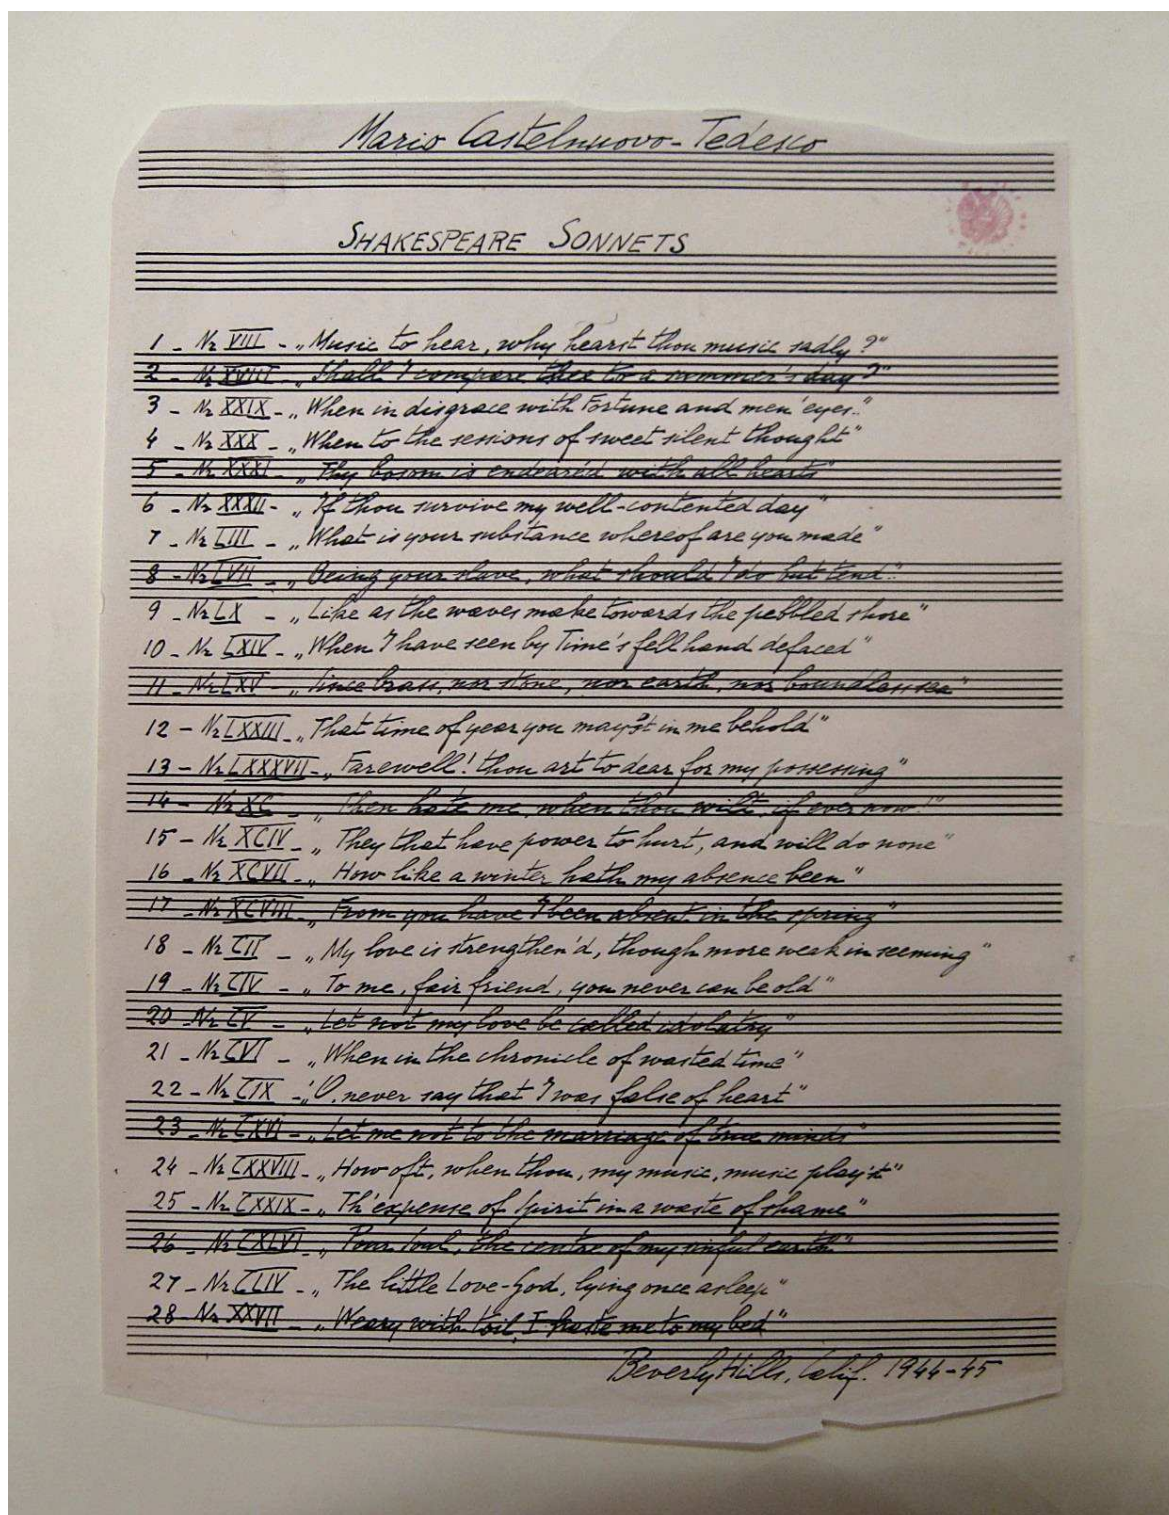 Mario Castelnuovo-Tedesco
SHAKESPEARE SONNETS
1 - Nr VIII - „Music to hear, why hearst thou music sadly?"
2 - Nr XVIII - „Shall I compare thee to a summer's day?"
3 - Nr XXIX - „When in disgrace with Fortune and men' eyes.."
4 - Nr XXX - „When to the sessions of sweet silent thought"
5 - Nr XXXI - „Thy bosom is endeared with all hearts"
6 - Nr XXXII - „If thou survive my well-contented day"
7 - Nr LIII - „What is your substance whereof are you made"
8 - Nr LVII - „Being your slave, what should I do but tend.."
9 - Nr LX - „Like as the waves make towards the pebbled shore"
10 - Nr LXIV - „When I have seen by Time's fell hand defaced"
11 - Nr LXV - „Since brass, nor stone, nor earth, nor boundless sea"
12 - Nr LXXIII - „That time of year you may'st in me behold"
13 - Nr LXXXVII - „Farewell! thou art to dear for my possessing"
14 - Nr XC - „Then hate me, when thou wilt, if ever now!"
15 - Nr XCIV - „They that have power to hurt, and will do none"
16 - Nr XCVII - „How like a winter hath my absence been"
17 - Nr XCVIII - „From you have I been absent in the spring"
18 - Nr CII - „My love is strengthen'd, though more weak in seeming"
19 - Nr CIV - „To me, fair friend, you never can be old"
20 - Nr CV - „Let not my love be called idolatry"
21 - Nr CVI - „When in the chronicle of wasted time"
22 - Nr CIX - „O, never say that I was false of heart"
23 - Nr CXVI - „Let me not to the marriage of true minds"
24 - Nr CXXVIII - „How oft, when thou, my music, music play'st"
25 - Nr CXXIX - „Th'expense of Spirit in a waste of shame"
26 - Nr CXLVI - „Poor Soul, the centre of my sinful earth"
27 - Nr CLIV - „The little Love-God, lying once asleep"
28 - Nr XXVII - „Weary with toil, I haste me to my bed"
Beverly Hills, Calif. 1944-45